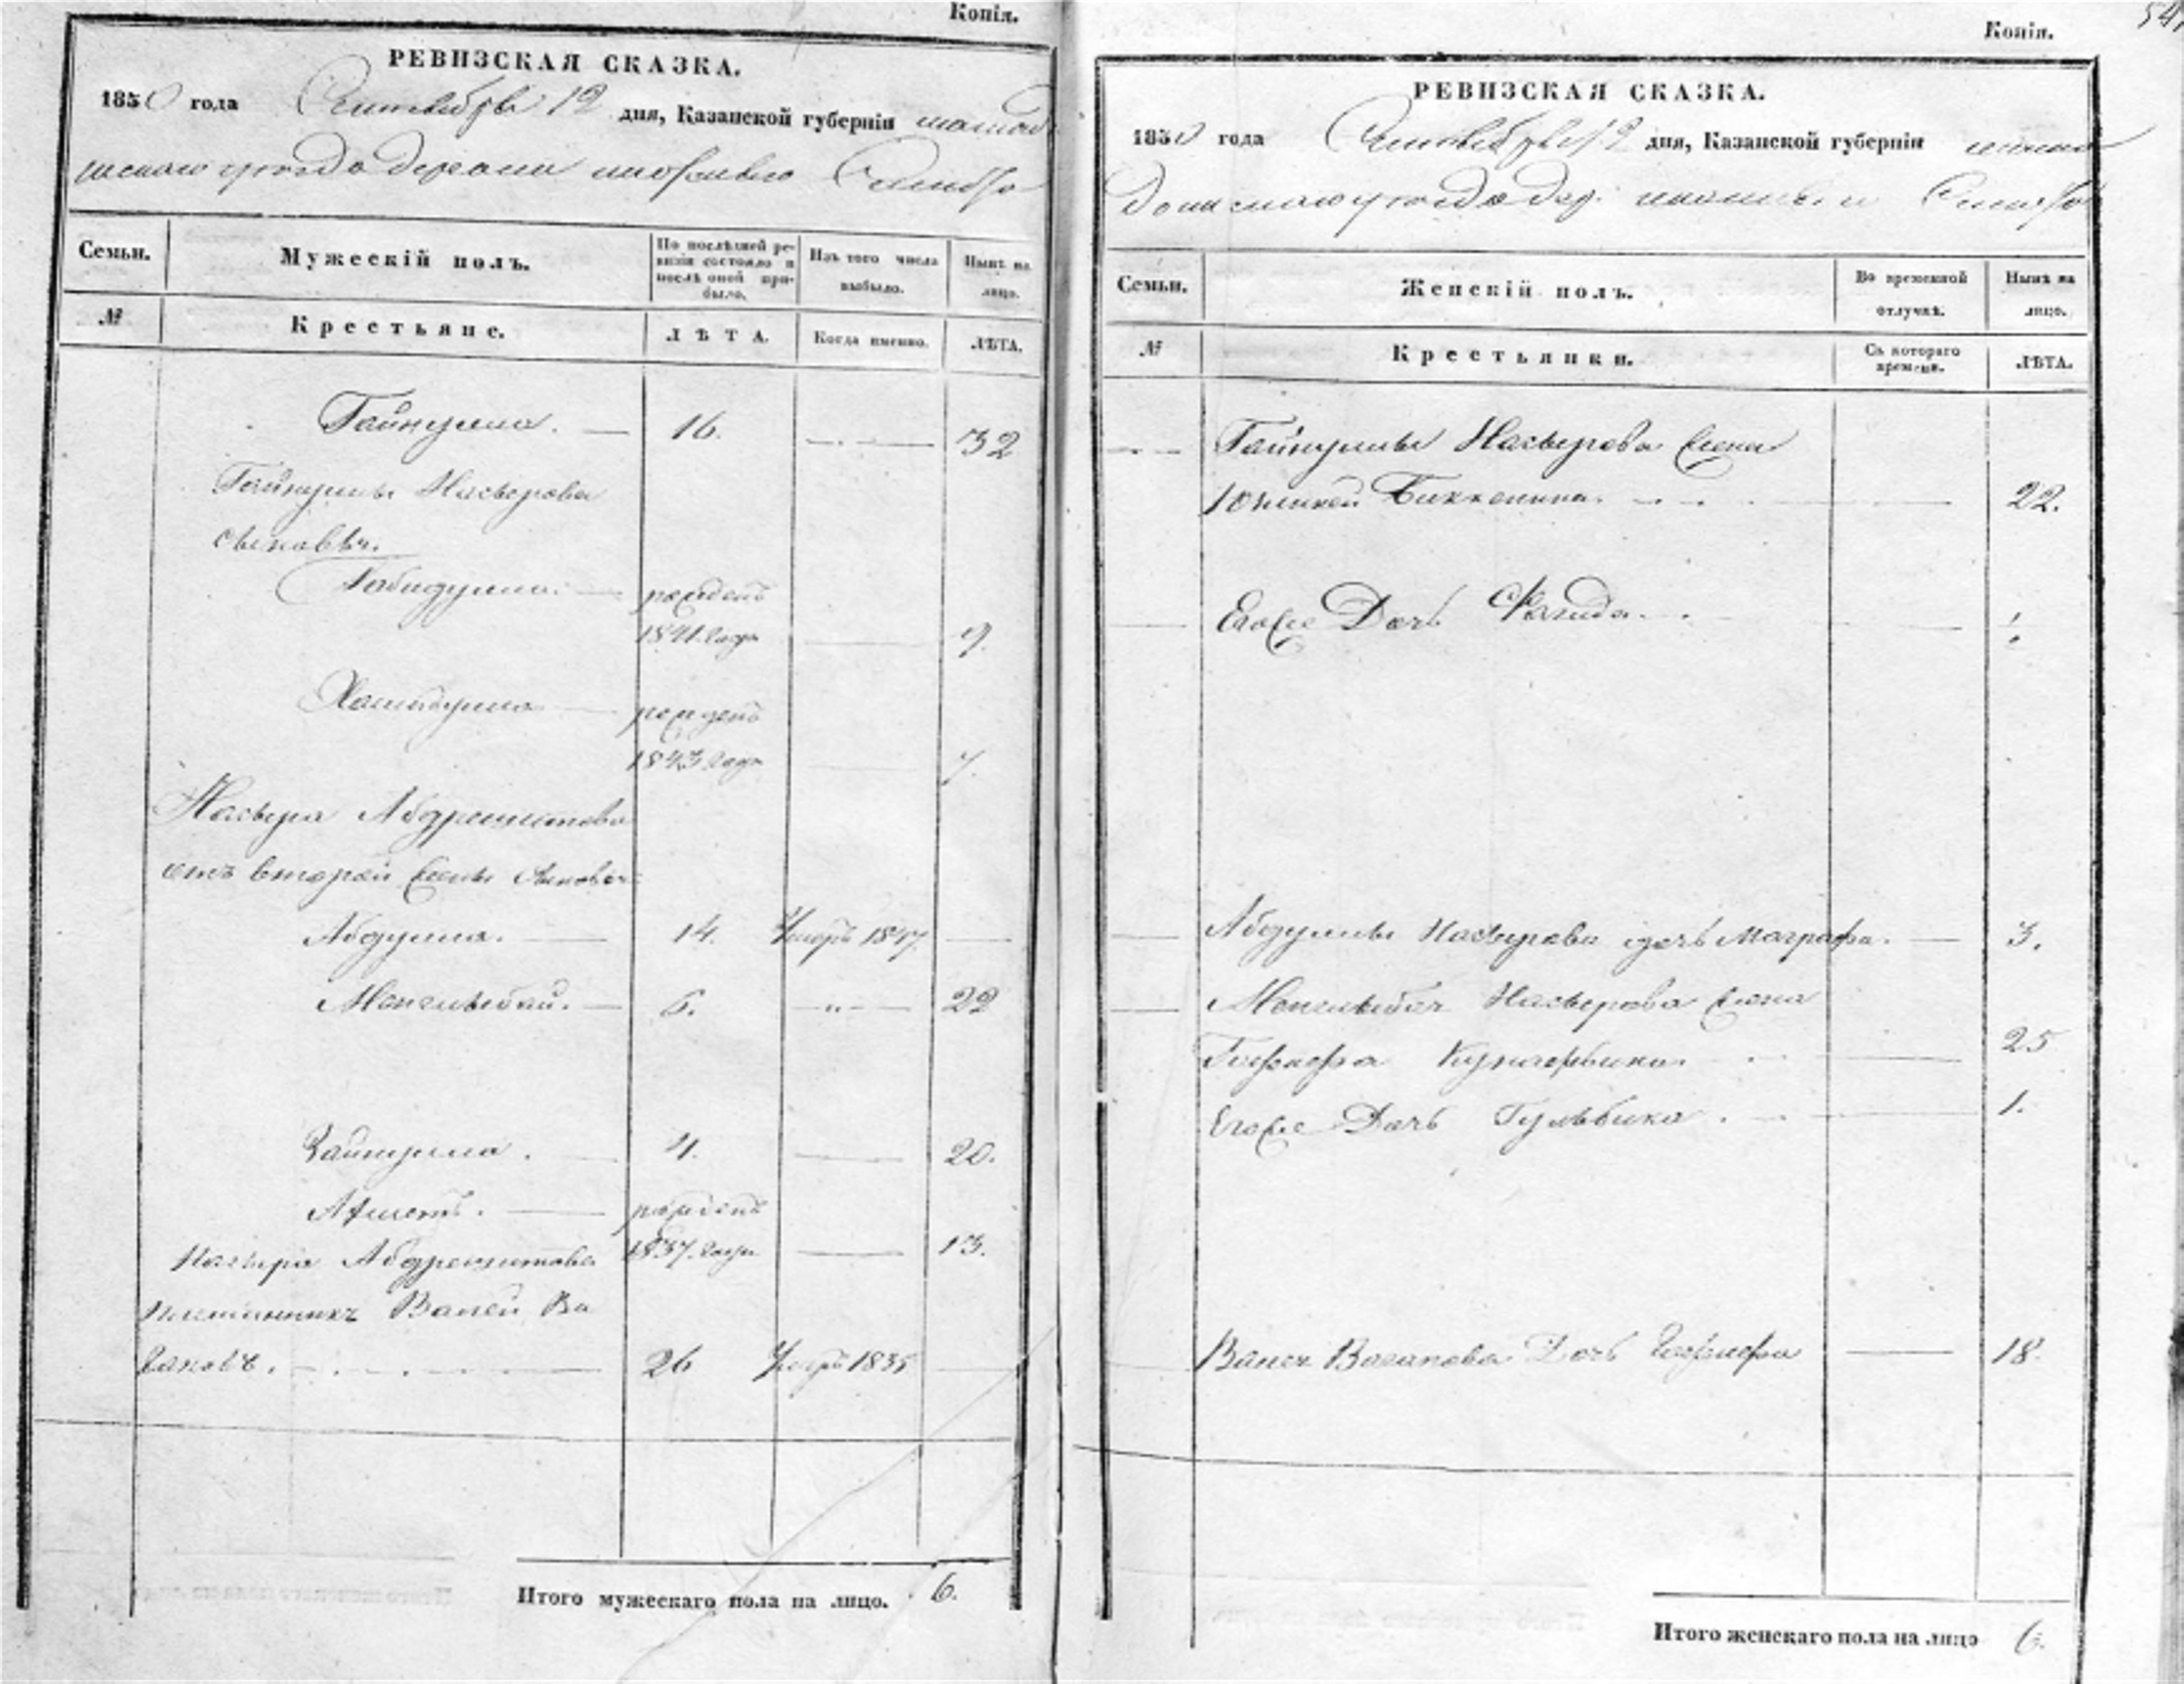 Копія.
РЕВИЗСКАЯ СКАЗКА.
1850 года Сентября 12 дня, Казанской губерніи
уезда деревни
Семьи. Мужескій полъ. По послѣдней ревизіи состояло и послѣ оной прибыло. Изъ того числа выбыло. Нынѣ на лицо.
№ Крестьяне. ЛѢТА. Когда именно. ЛѢТА.
Гайнулла. 16. 32
Гайнуллы Насырова
сыновья.
Габидулла. рожденъ
1841 года 9.
рожденъ
1843 года 7.
Насыра Абдрешитова
отъ второй жены сыновья
Абдулла. 14. Умеръ 1847.
Менглыбай. 6. 22
Зайнулла. 4. 20.
Ахметъ. рожденъ
Насыра Абдрешитова 1837 года 13.
племянникъ Валей Ва
гаповъ. 26 Умеръ 1835
Итого мужескаго пола на лицо. 6.
Копія.
РЕВИЗСКАЯ СКАЗКА.
1850 года Сентября 12 дня, Казанской губерніи
уезда дер.
Семьи. Женскій полъ. Во временной отлучкѣ. Нынѣ на лицо.
№ Крестьянки. Съ котораго времени. ЛѢТА.
Гайнуллы Насырова жена
Биккенина. 22.
Егоже Дочь
Абдуллы Насырова дочь Маграфа. 3.
Менглыбая Насырова жена
25
Егоже Дочь Гульбика. 1.
Валея Вагапова Дочь 18.
Итого женскаго пола на лицо 6.